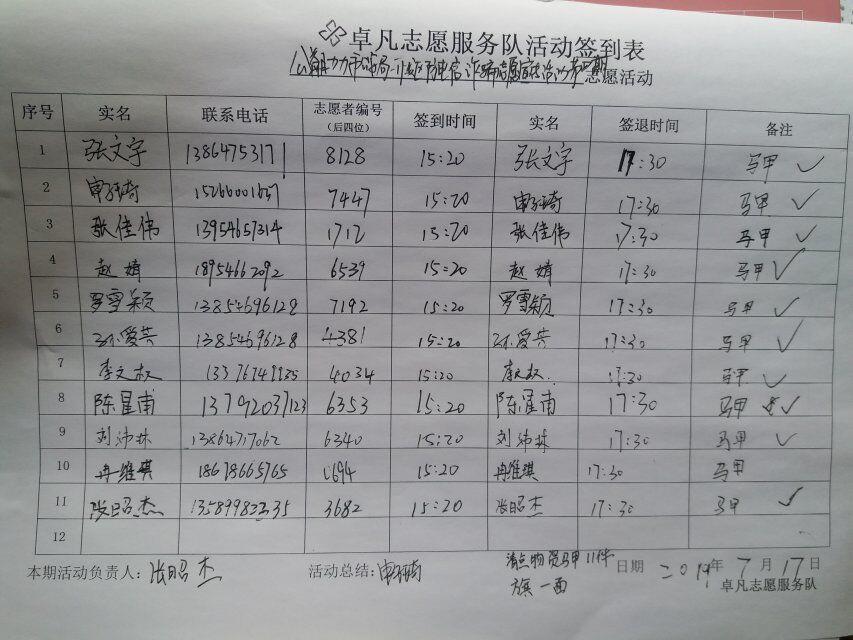 卓凡志愿服务队活动签到表
志愿活动
序号 实名 联系电话 志愿者编号（后四位） 签到时间 实名 签退时间 备注
1 张文宇 13864753171 8128 15:20 张文宇 17:30 马甲 ✓
2 7447 15:20 17:30 马甲 ✓
3 张佳伟 13954657314 1712 15:20 张佳伟 17:30 马甲 ✓
4 赵婧 18954662092 6539 15:20 赵婧 17:30 马甲 ✓
5 罗雪颖 13854696128 7192 15:20 罗雪颖 17:30 马甲 ✓
6 孙爱芸 13854696128 4381 15:20 孙爱芸 17:30 马甲 ✓
7 李文叔 4034 15:20 李文叔 17:30 马甲 ✓
8 陈星甫 13792037123 6353 15:20 陈星甫 17:30 马甲 ✓
9 刘沛林 13864717062 6340 15:20 刘沛林 17:30 马甲 ✓
10 冉维琪 18678665765 1694 15:20 冉维琪 17:30 马甲
11 张昭杰 13589982235 3682 15:20 张昭杰 17:30 马甲 ✓
12
本期活动负责人：张昭杰 活动总结： 清点物资马甲11件 日期 二〇19年7月17日
旗一面 卓凡志愿服务队